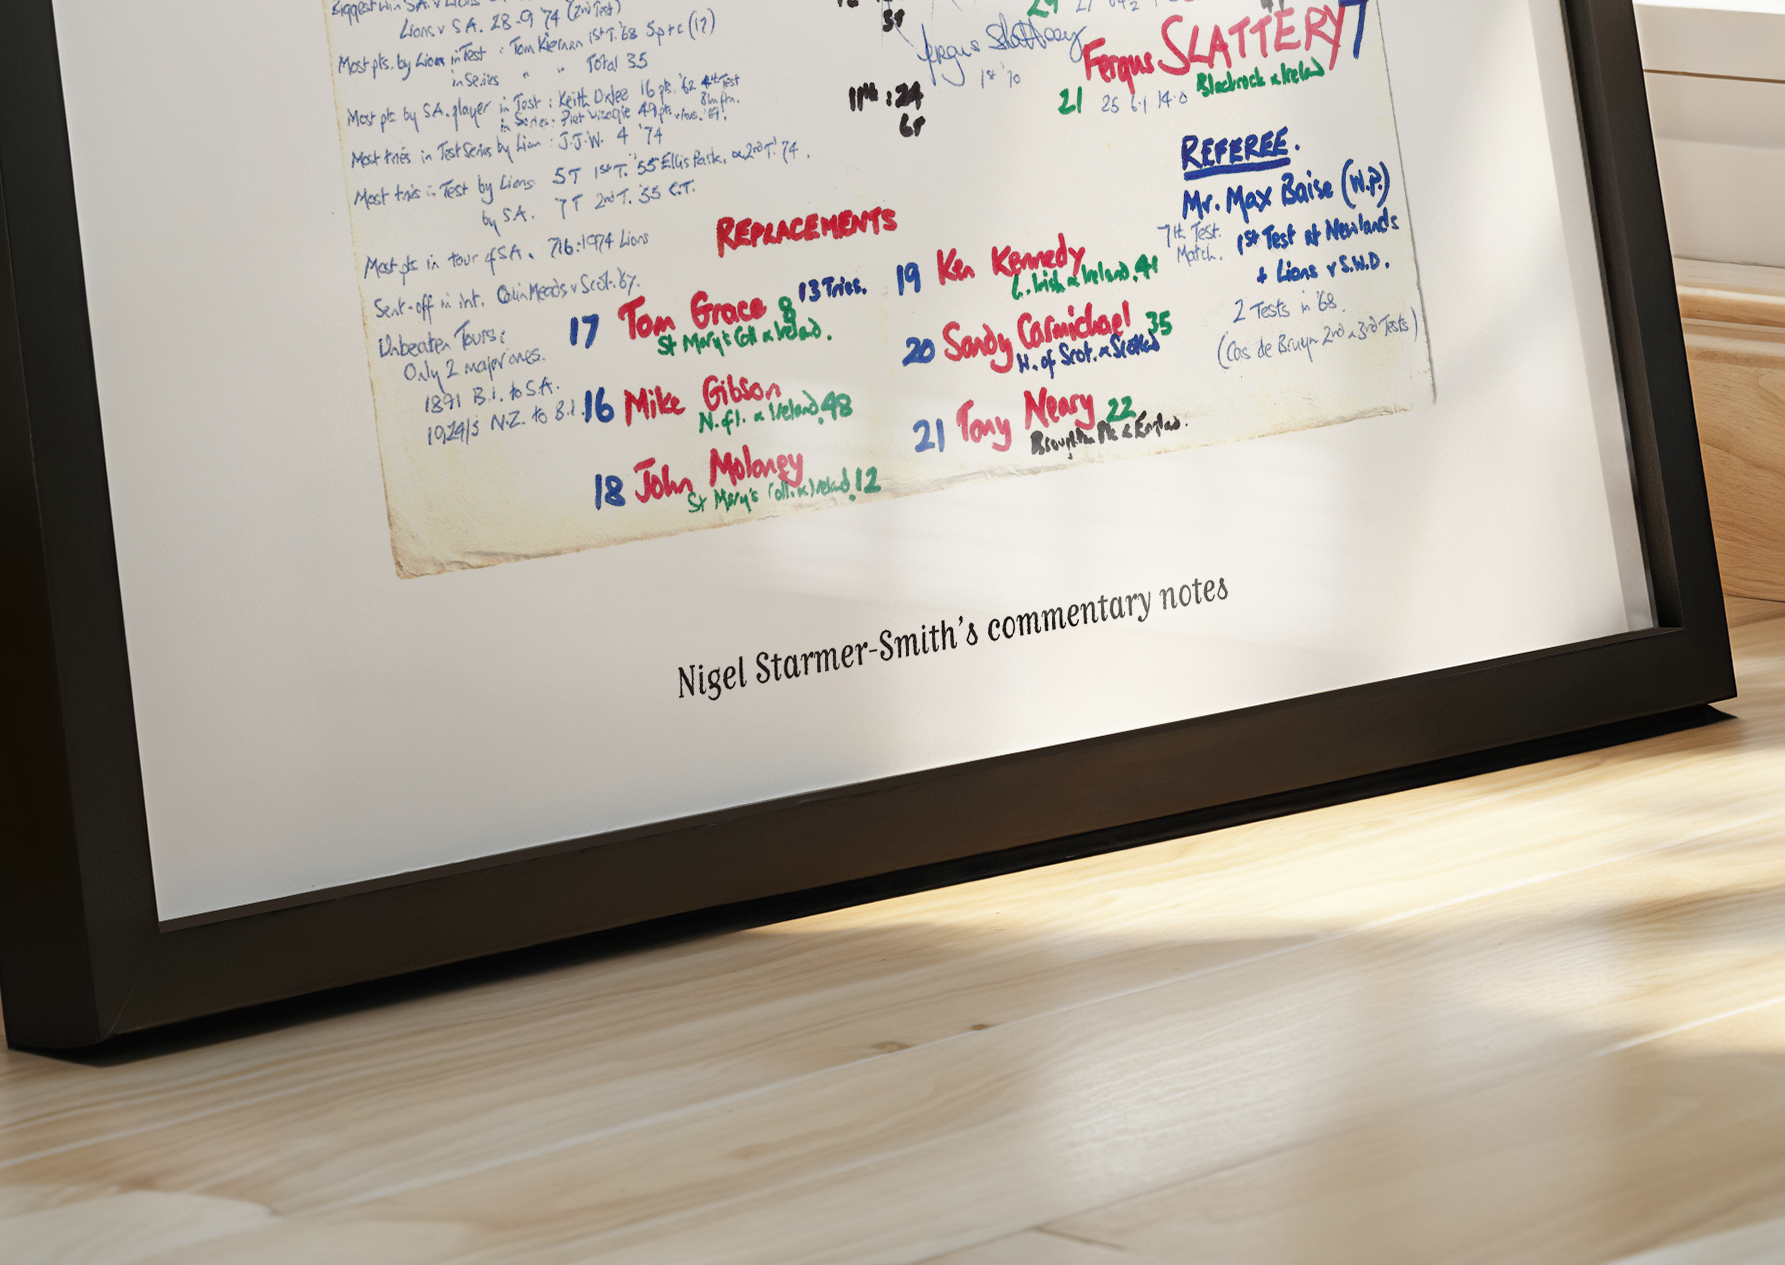 Biggest win S.A. v Lions
Lions v S.A. 28-9 '74 (2nd Test)
Most pts. by Lion in Test : Tom Kiernan 1st T. '68 5p+c (17)
in Series " " Total 35
Most pts by S.A. player in Test : Keith Oxlee 16 pts. '62 4th Test Bloemftn.
in Series: Piet Visagie 49 pts v Aus. '69.
Most tries in Test Series by Lion : J.J.W. 4 '74
Most tries in Test by Lions 5T 1st T. '55 Ellis Park, & 2nd T. '74.
by S.A. 7T 2nd T. '55 C.T.
Most pts in tour of S.A. 716 : 1974 Lions
Sent-off in int. Colin Meads v Scot. '67.
Unbeaten Tours:
Only 2 major ones.
1891 B.I. to S.A.
1924/5 N.Z. to B.I.
5T
11 : 24
6T
29
Fergus Slattery
1st '70
Fergus SLATTERY 7
Blackrock & Ireland
21 25 6.1 14.0
REFEREE.
Mr. Max Baise (W.P.)
7th Test Match. 1st Test at Newlands
+ Lions v S.W.D.
2 Tests in '68.
(Cas de Bruyn 2nd & 3rd Tests)
REPLACEMENTS
17 Tom Grace 8 13 Tries.
St Mary's Coll & Ireland.
16 Mike Gibson
N.of I. & Ireland. 48
18 John Moloney
St Mary's Coll. & Ireland. 12
19 Ken Kennedy
L. Irish & Ireland. 41
20 Sandy Carmichael 35
W. of Scot. & Scotland
21 Tony Neary 22
Broughton Pk & England.
Nigel Starmer-Smith's commentary notes